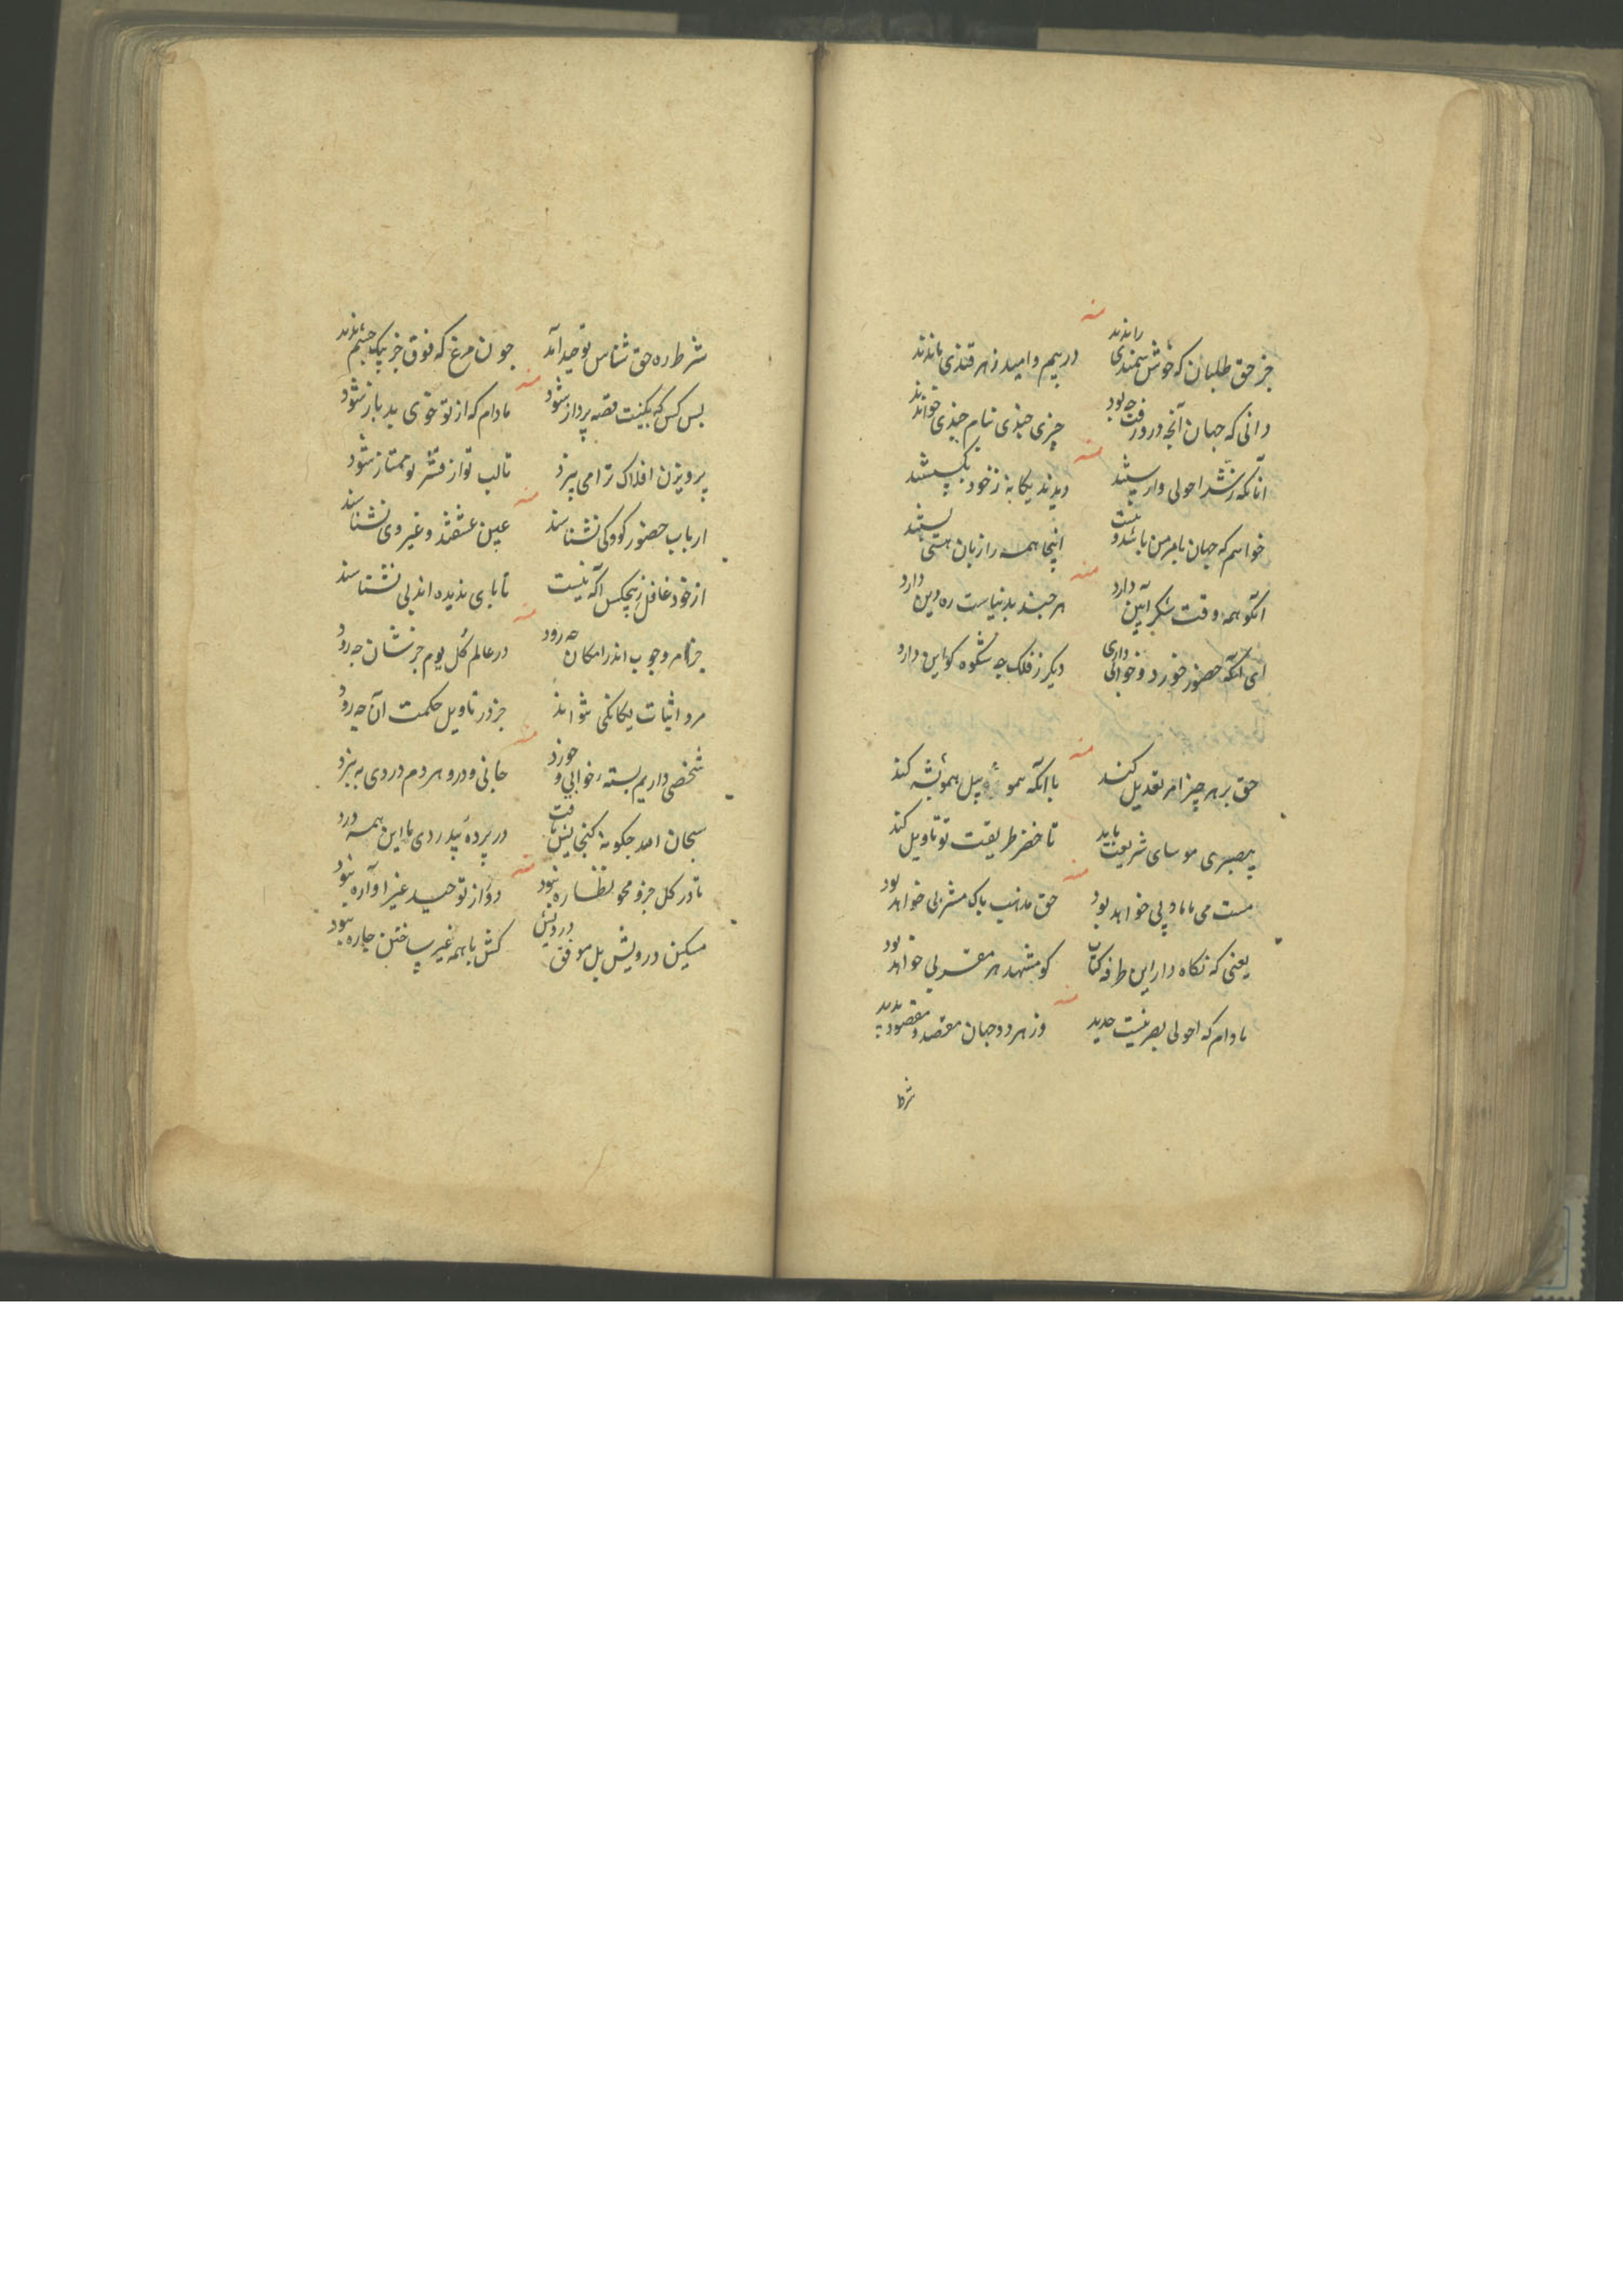 منه
جز حق طلبان که خوش سمندی راندند در بیم و امید زهر قندی ماندند
دانی که جهان آنچه درو رفت چه بود چیزی چندی بنام چندی خواندند
منه
آنانکه ز شر احولی وارستند دیدند یکانه ز خود بکسستند
خواهم که جهان بامر من باشد و نیست اینجا همه را زبان هستی بستند
منه
آنکو همه وقت شکر آیین دارد هر چند بدنیاست ره دین دارد
ای آنکه حضور خورد و خوابی داری دیگر ز فلک چه شکوه کو این دارد
منه
حق بر هر چیز امر تعدیل کند با آنکه همو پیل همو پشه کند
پیصبری موسای شریعت باید تا خضر طریقت تو تاویل کند
منه
مست می ما با دپی خواهد بود حق مذهب پاک مشربی خواهد بود
یعنی که نکاه دار این طرفه کتاب کو مشهد هر مقربی خواهد بود
منه
مادام که احولی بصر نیست حدید وز هر دو جهان مقصد و مقصود پدید
شرط
شرط ره حق شناس توحید آمد چون مرغ که فوق جز بیک چشم ندید
منه
بس کس که بکینت قصه پرداز شود مادام که از تو خوی بد باز شود
پرویزن افلاک ترا می بیزد تا لب تو از قشر تو ممتاز شود
منه
ارباب حضور کودکی نشناسند عین عشقند و غیر وی نشناسند
از خود غافل ز هیچکس آکه نیست تا بای ندیده اند پی نشناسند
منه
جز امر وجوب اندر امکان چه رود در عالم کل یوم جز شان چه رود
مرد اثبات یکانکی نتوانند جز در تاویل حکمت آن چه رود
منه
شخصی داریم بسته خوابی و خورد جانی و درو هر دم دردی به نبرد
سبحان الله چکونه کنجایش یافت در پرده بیدردی ما این همه درد
منه
تا در کل جزو محو نظاره نبود دور از توحید غیر آواره نبود
مسکین درویش بل موفق درویش کش با همه غیر ساختن چاره نبود